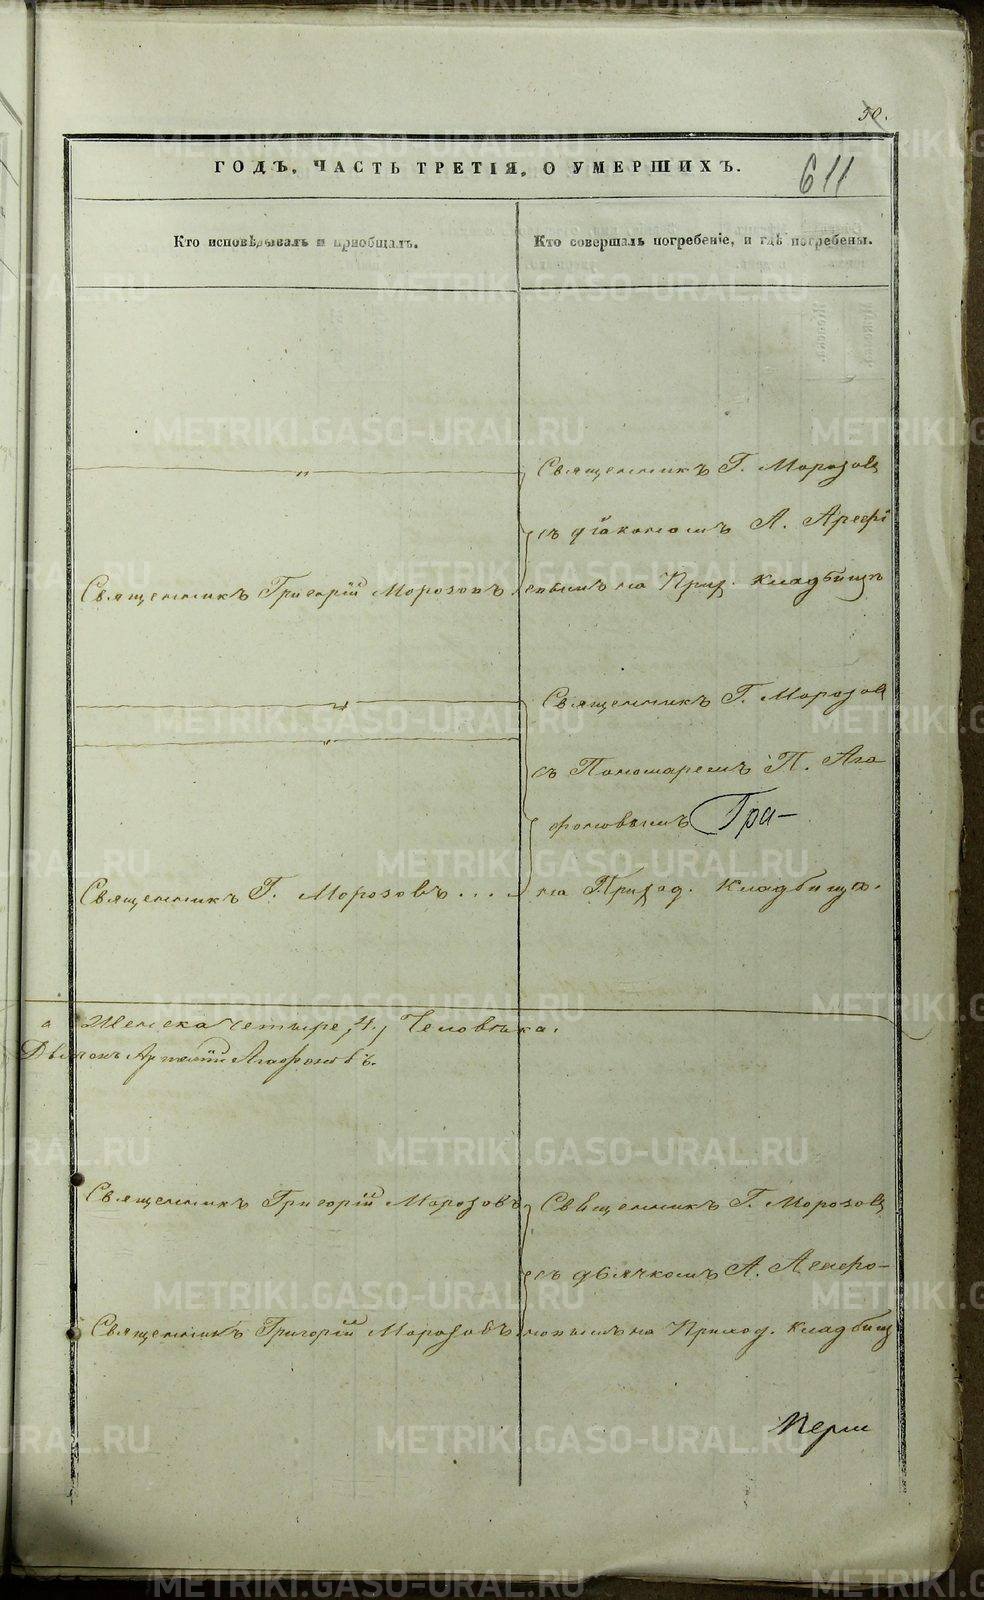 50.
ГОДЪ, ЧАСТЬ ТРЕТІЯ, О УМЕРШИХЪ.
611
Кто исповѣдывалъ и приобщалъ.
Кто совершалъ погребеніе, и гдѣ погребены.
Священникъ Г. Морозовъ
съ діакономъ А. Арефі
Священникъ Григорій Морозовъ.
евымъ на Прих. кладбищѣ
Священникъ Г. Морозовъ
съ Пономаремъ П. Ага
фоновымъ Гра-
Священникъ Г. Морозовъ...
на Приход. Кладбищѣ.
Женска четыре, 4., Человѣка.
Агафоновъ.
Священникъ Григорій Морозовъ
Священникъ Г. Морозовъ
съ дьячкомъ А. Агафо-
Священникъ Григорій Морозовъ
новымъ на Приход. кладбищ
Перм
METRIKI.GASO-URAL.RU